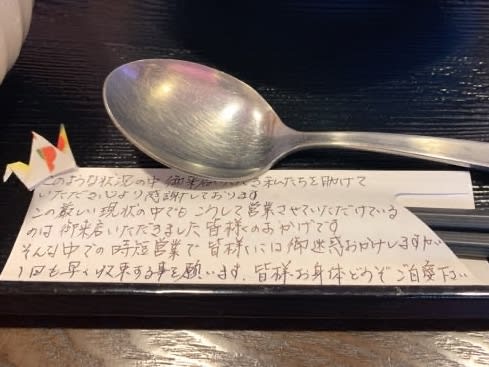 このような状況の中 御来店いただき 私たちを助けて
いただき心より感謝しております
この厳しい現状の中でも こうして営業させていただけている
のは御来店いただきました皆様のおかげです
そんな中での時短営業で皆様には御迷惑おかけしますが
1日も早く収束する事を願います. 皆様お身体どうぞご自愛下さい